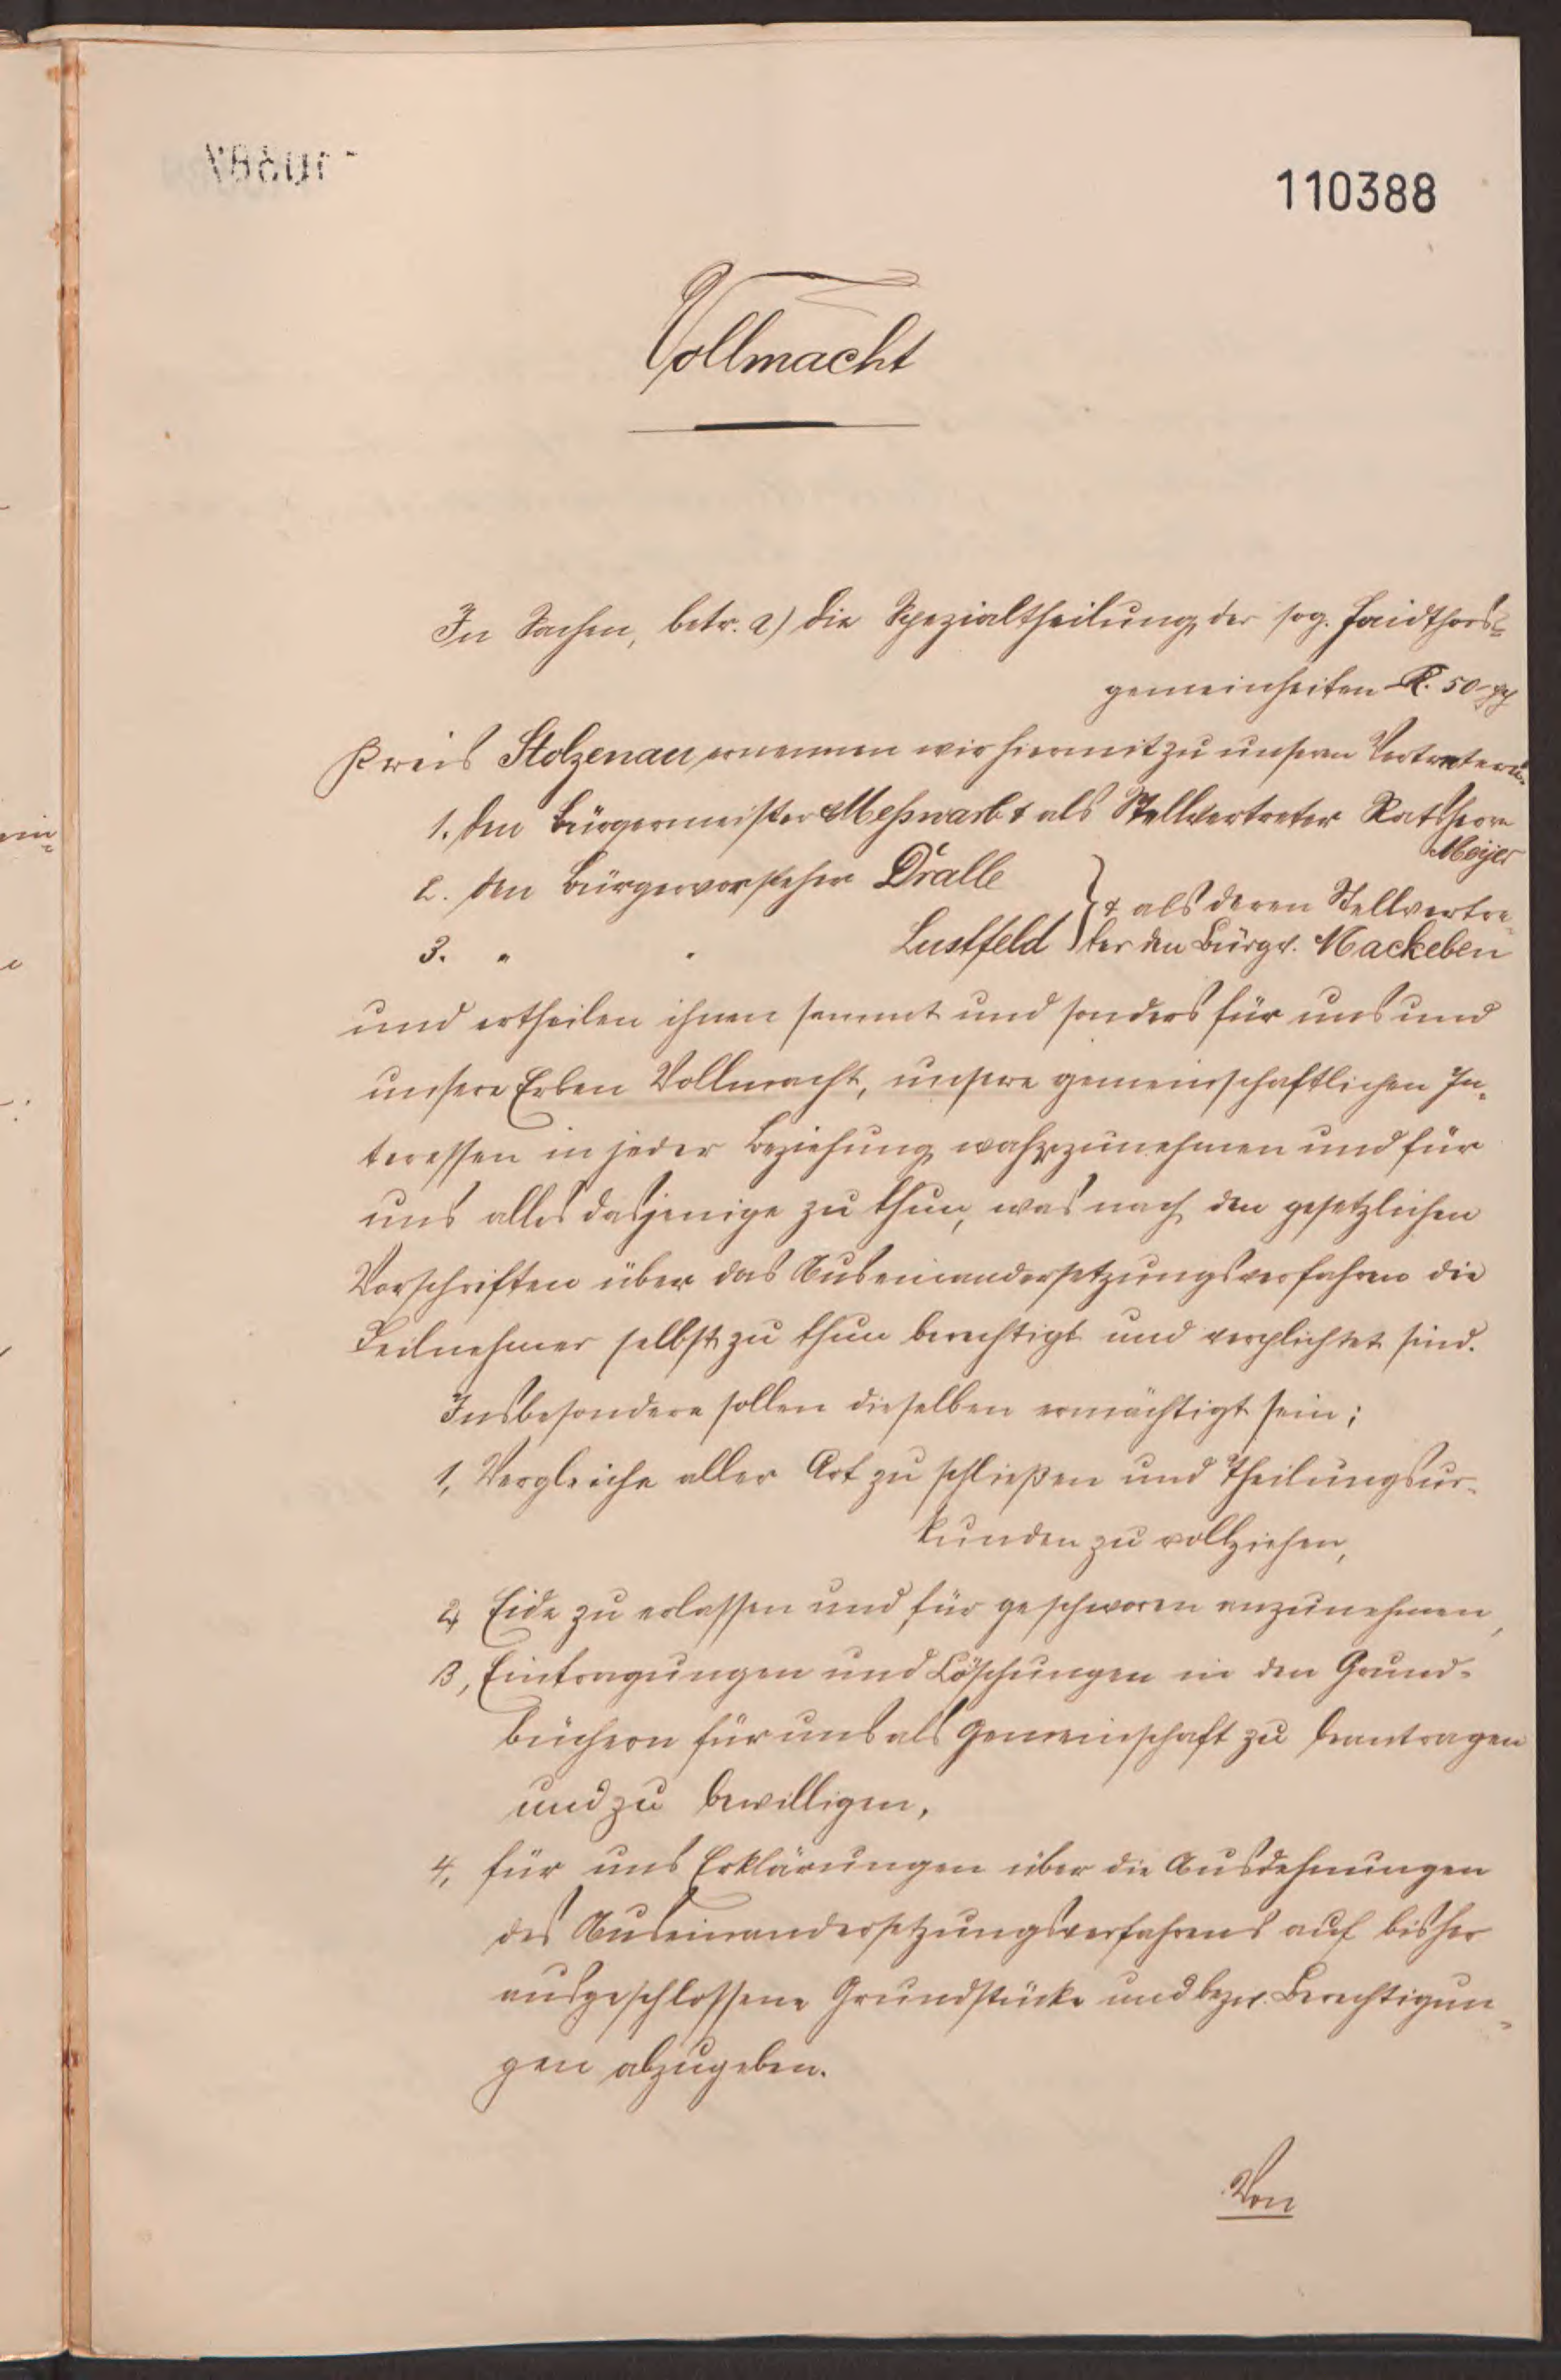 110388
Vollmacht
In Sachen, betr. a) die Spezialtheilung der sog. Haidthors=
gemeinheiten K. 50
Kreis Stolzenau ernennen wir hiermit zu unseren Vertretern:
1. den Bürgermeister Meßwarb & als Stellvertreter Ratsherrn
Meyer
2. den Bürgervorsteher Dralle
& als deren Stellvertre-
3. " " Lustfeld ter den Bürgv. Mackeben
und ertheilen ihnen sammt und sonders für uns und
unsere Erben Vollmacht, unsere gemeinschaftlichen In-
teressen in jeder Beziehung wahrzunehmen und für
uns alles dasjenige zu thun, was nach den gesetzlichen
Vorschriften über das Auseinandersetzungsverfahren die
Teilnehmer selbst zu thun berechtigt und verplichtet sind.
Insbesondere sollen dieselben ermächtigt sein;
1, Vergleiche aller Art zu schließen und Theilungsur-
kunden zu vollziehen,
2, Eide zu erlassen und für geschworen anzunehmen,
3, Eintragungen und Löschungen in den Grund-
büchern für uns als Gemeinschaft zu beantragen
und zu bewilligen,
4, für uns Erklärungen über die Ausdehnungen
des Auseinandersetzungsverfahrens auf bisher
ausgeschlossene Grundstücke und bezw. Berechtigun-
gen abzugeben.
Von